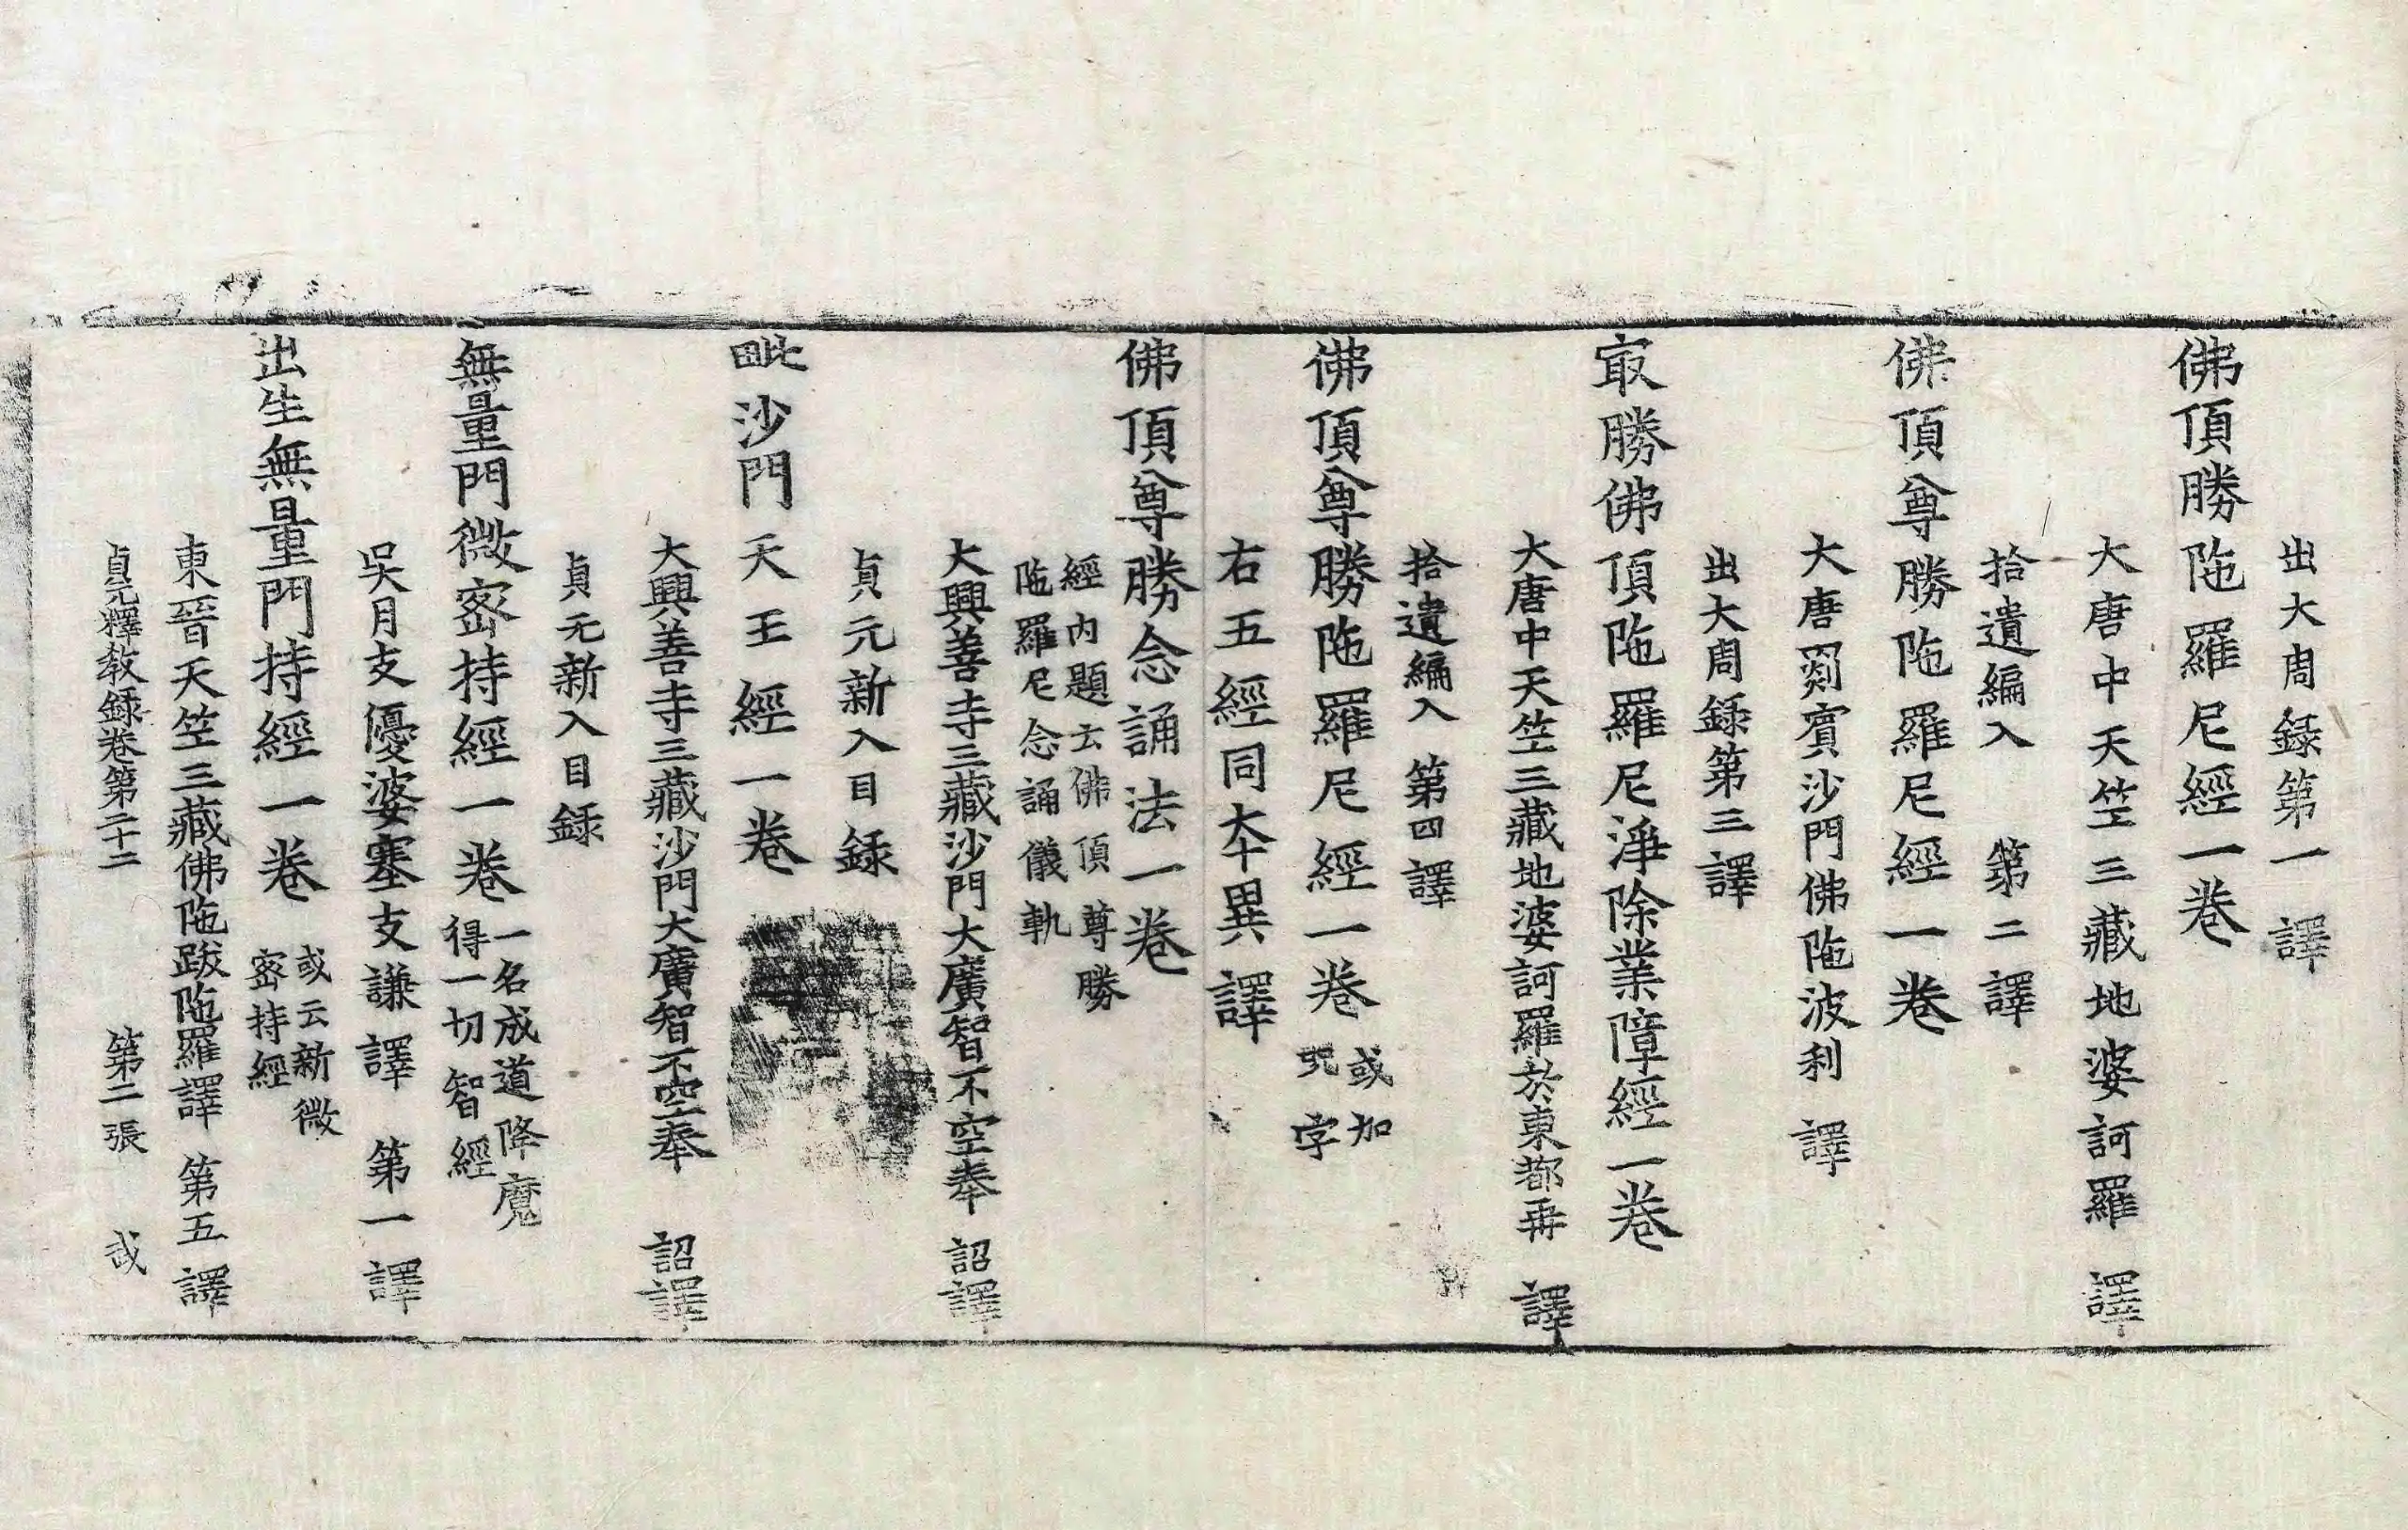 出大周録第一譯
佛頂勝陁羅尼經一卷
大唐中天笁三藏地婆訶羅譯
拾遺編入第二譯
佛頂尊勝陁羅尼經一卷
大唐罽賓沙門佛陁波利譯
出大周録第三譯
㝡勝佛頂陁羅尼淨除業障經一卷
大唐中天笁三藏地婆訶羅於東都再譯
拾遺編入第四譯
佛頂尊勝陁羅尼經一卷或加
呪字
右五經同夲異譯
佛頂尊勝念誦法一卷
經內題云佛頂尊勝
陁羅尼念誦儀軌
大興善寺三藏沙門大廣智不空奉詔譯
貞元新入目録
毗沙門天王經一卷
大興善寺三藏沙門大廣智不空奉詔譯
貞元新入目録
無量門微密持經一卷一名成道降魔
得一切智經
吳月支優婆塞支謙譯第一譯
出生無量門持經一卷或云新微
密持經
東晉天笁三藏佛陁跋陁羅譯第五譯
貞元釋教録卷第二十二第二張